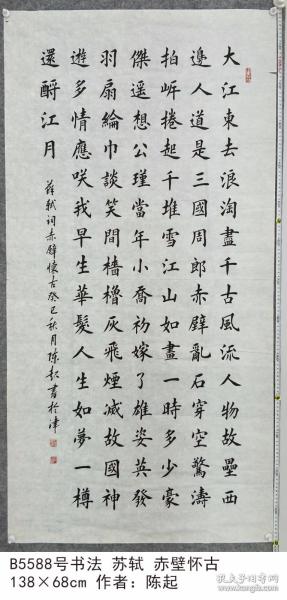 大江東去浪淘盡千古風流人物故壘西
邊人道是三國周郎赤壁亂石穿空驚濤
拍岸捲起千堆雪江山如畫一時多少豪
傑遥想公瑾當年小喬初嫁了雄姿英發
羽扇綸巾談笑間檣櫓灰飛煙滅故國神
遊多情應咲我早生華髮人生如夢一樽
還酹江月
蘇軾词赤壁懷古癸巳秋月陳起書於津
B5588号书法 苏轼 赤壁怀古
138×68cm 作者：陈起